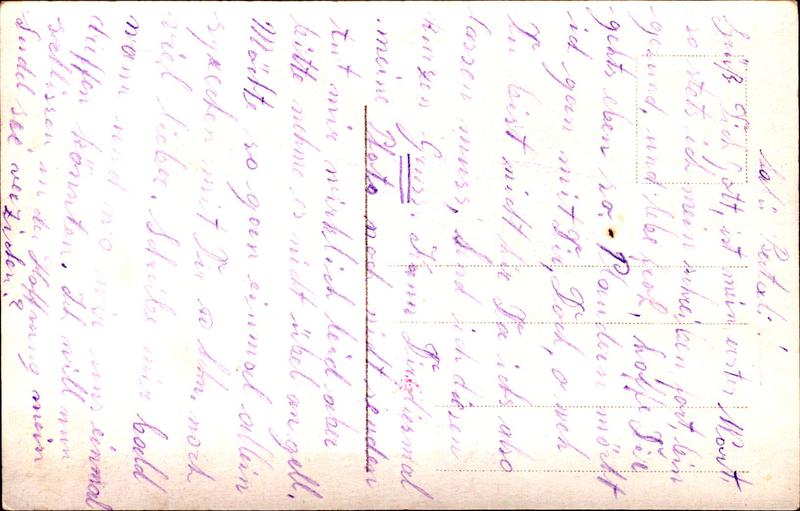 Grüß Dich Gott, ist mein erstes Wort,
so stets ich mein schreiben fort, bin
gesund, und lebe froh, hoffe Dir
gehts eben so. Plaudern möcht
ich gern mit Dir, Doch, o weh
Du bist nicht hir Da ichs also
lassen muss, send ich diesen
kurzen Gruss. Kann Dir diesmal
meine Photo noch nicht senden
tut mir wirklich leid aber
bitte nehme es nicht übel an gell.
Möchte so gern einmal allein
sprechen mit Dir noch
viel liebes. Schreibe mir bald
wann und wo wir uns einmal
treffen könnten. Ich will nun
schlissen in der Hoffnung mein
Sudel sei verziehen?